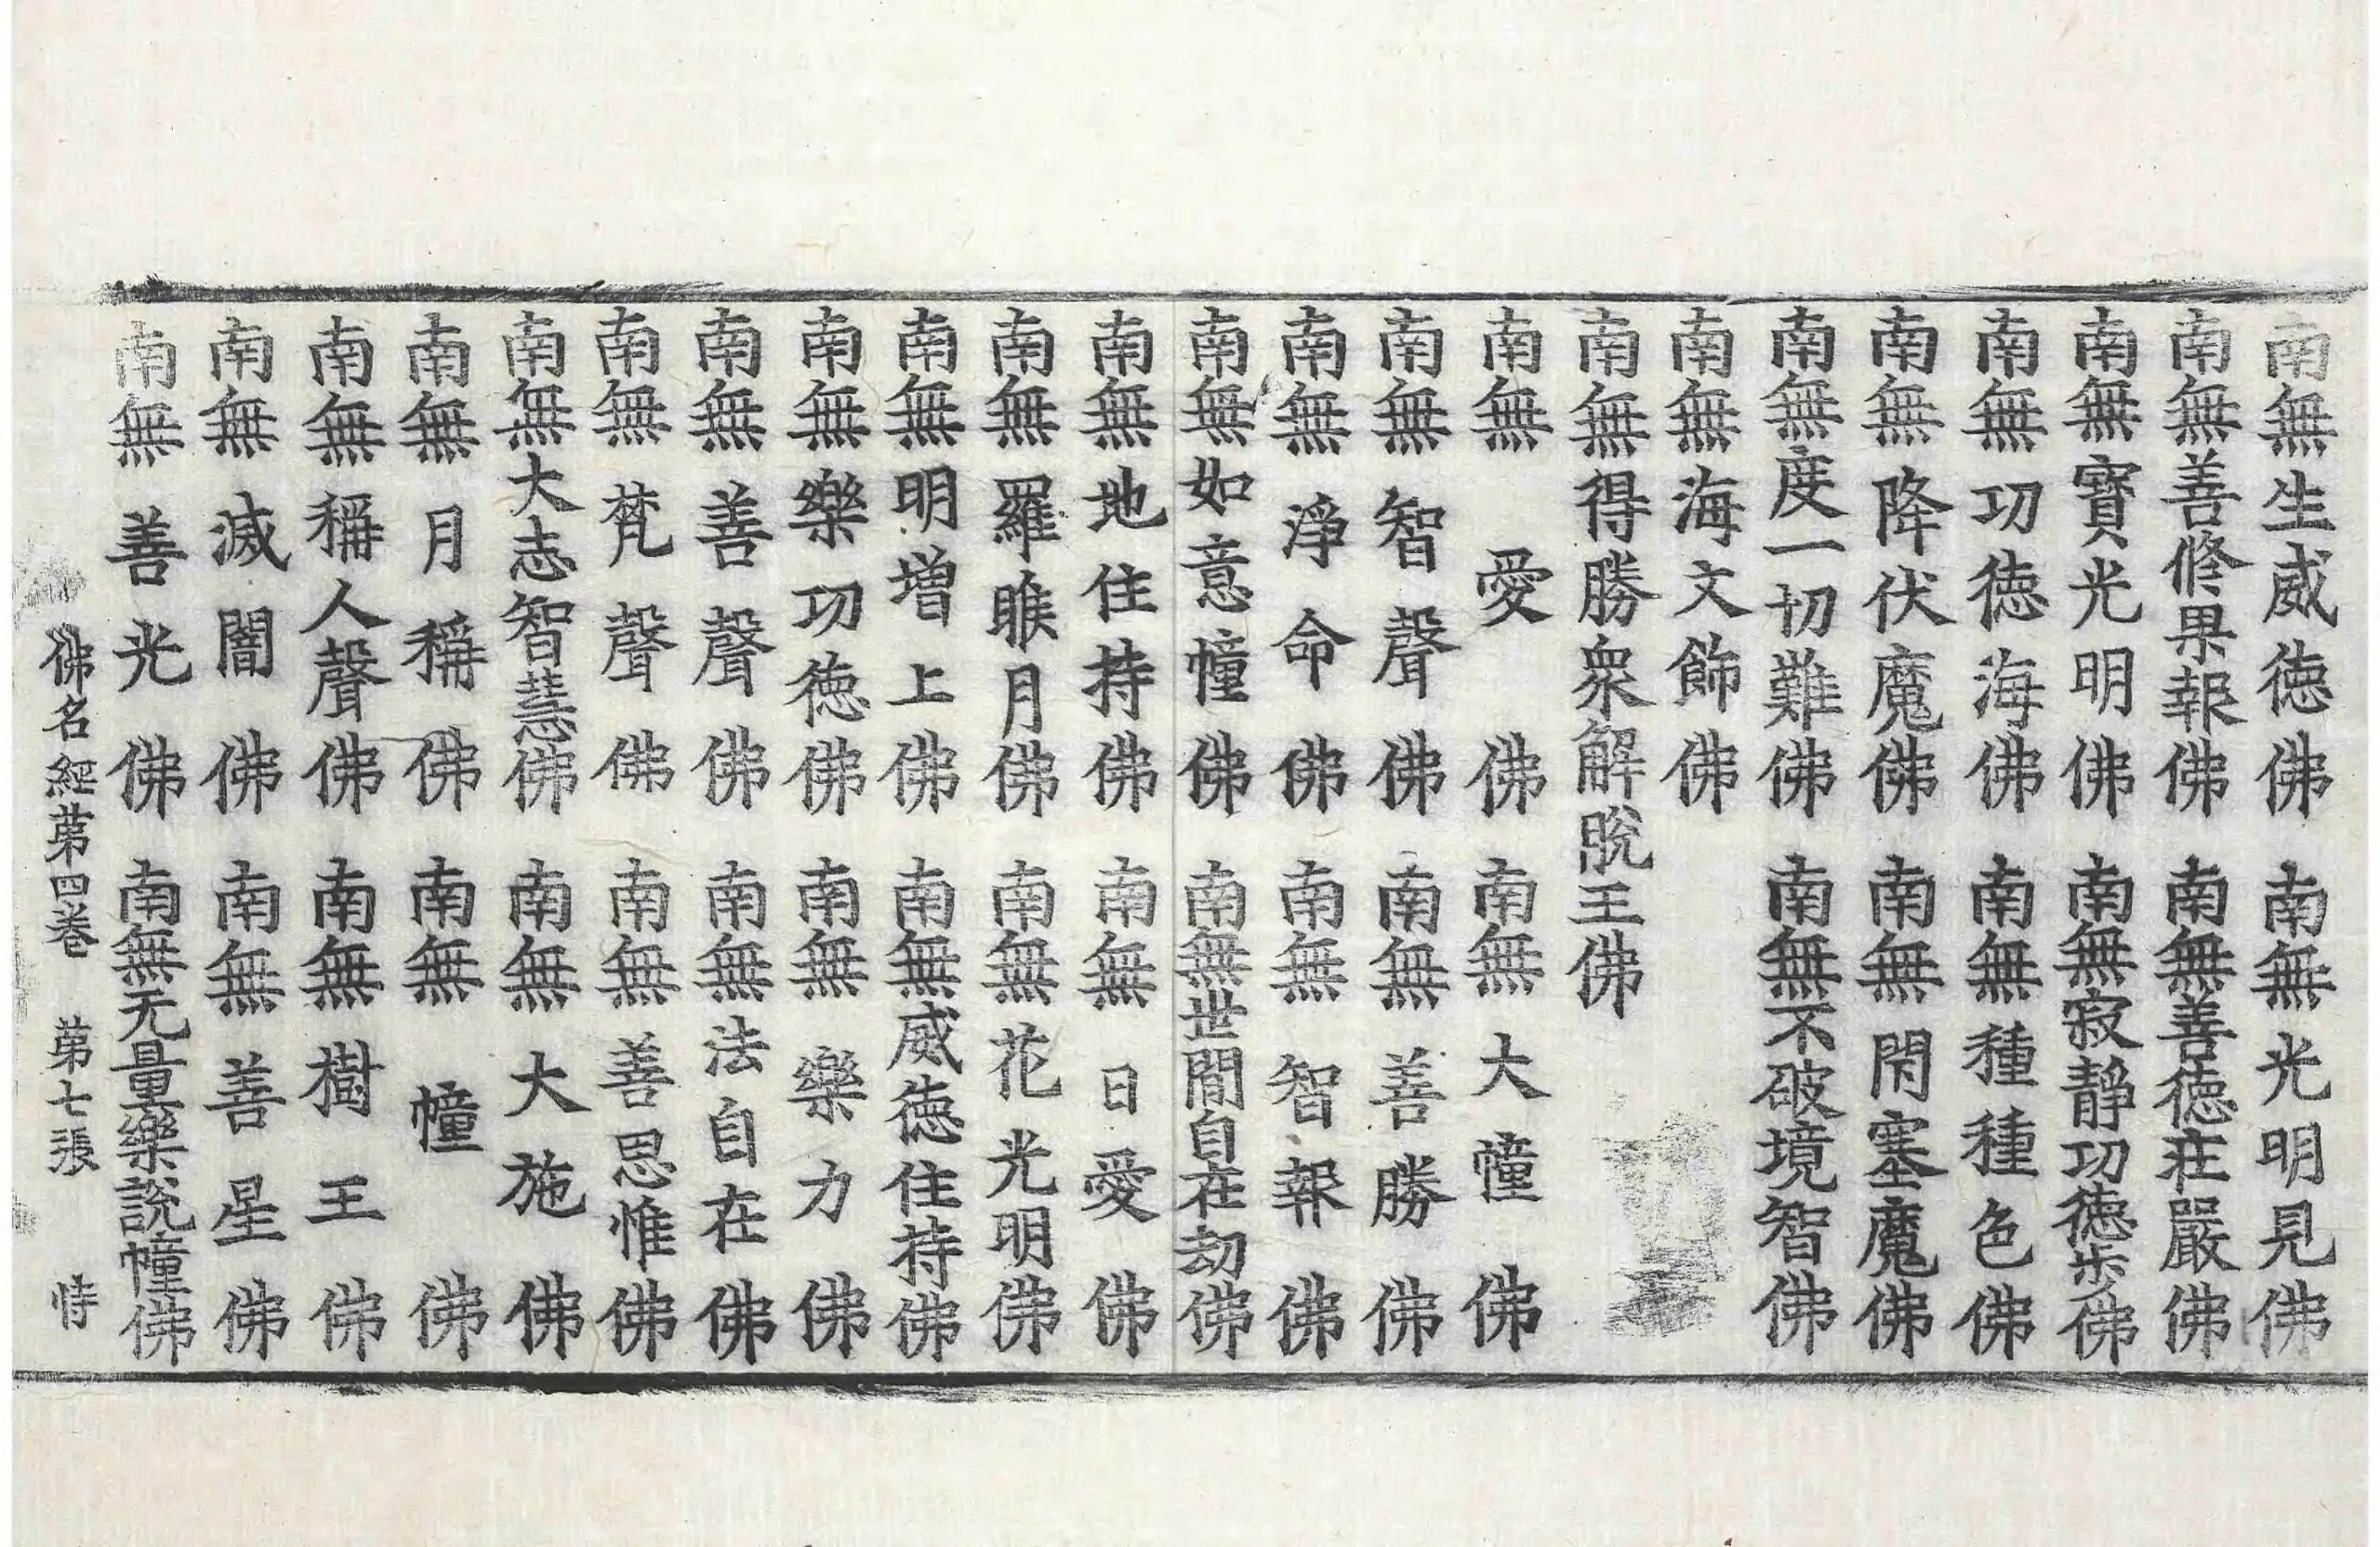 南無生威徳佛　南無光明見佛
南無善修果報佛　南無善徳莊嚴佛
南無寶光明佛　南無寂靜功徳步佛
南無功徳海佛　南無種種色佛
南無降伏魔佛　南無閇塞魔佛
南無度一切難佛　南無不破境智佛
南無海文飾佛
南無得勝衆解脫王佛
南無愛佛　南無大幢佛
南無智聲佛　南無善勝佛
南無淨命佛　南無智報佛
南無如意幢佛　南無世間自在劫佛
南無地住持佛　南無日愛佛
南無羅睺月佛　南無花光明佛
南無明增上佛　南無威徳住持佛
南無樂功徳佛　南無樂力佛
南無善聲佛　南無法自在佛
南無梵聲佛　南無善思惟佛
南無大志智慧佛　南無大施佛
南無月稱佛　南無幢佛
南無稱人聲佛　南無樹王佛
南無滅闇佛　南無善星佛
南無善光佛　南無无量樂說幢佛
佛名經第四卷　第七張　恃